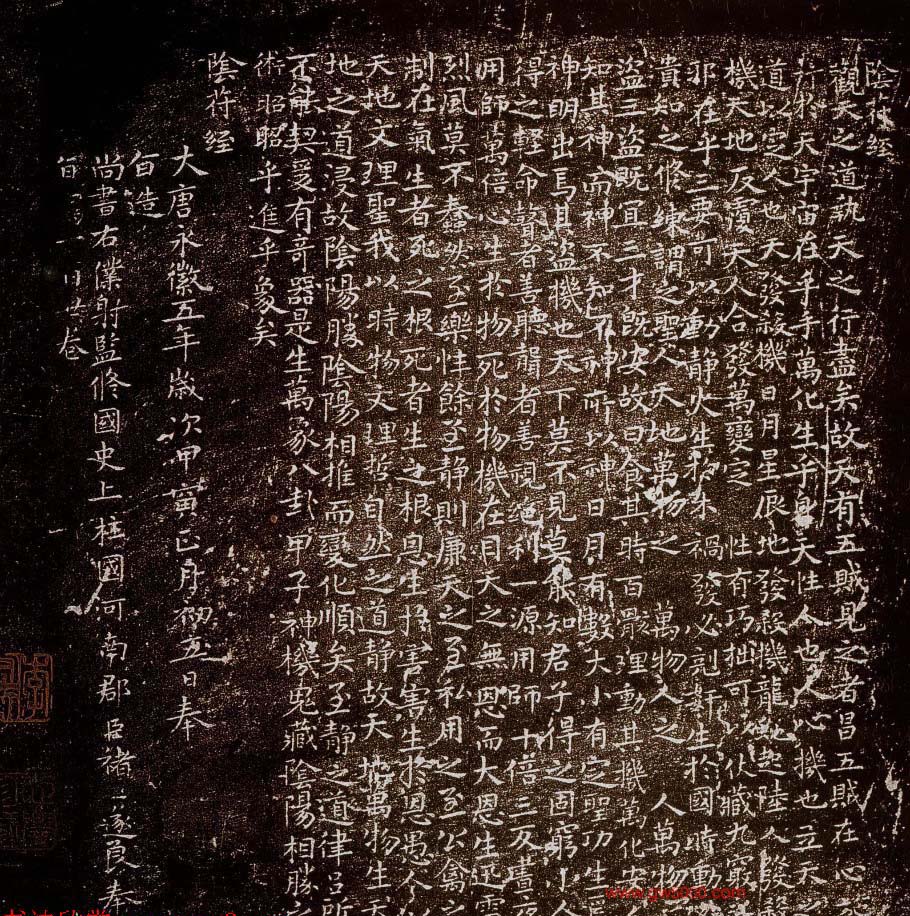 陰符經
觀天之道執天之行盡矣故天有五賊見之者昌五賊在心
行於天宇宙在乎手萬化生乎身天性人也人心機也立天之
道以定人也天發殺機日月星辰地發殺機龍虵起陸人發殺
機天地反覆天人合發萬變定性有巧拙可以伏藏九竅
耶在乎三要可以動靜火生於木禍發必剋姧生於國時動
貴知之修練謂之聖人天地萬物之萬物人之人萬物
盜三盜既宜三才既安故曰食其時百骸理動其機萬化安
知其神而神不知不神所以神日月有數大小有定聖功生
神明出焉其盜機也天下莫不見莫能知君子得之固窮小人
得之輕命瞽者善聽聾者善視絕利一源用師十倍三反晝夜
用師萬倍心生於物死於物機在目天之無恩而大恩生迅雷
烈風莫不蠢然至樂性餘至靜則廉天之至私用之至公禽之
制在氣生者死之根死者生之根恩生於害害生於恩愚人
天地文理聖我以時物文理哲自然之道靜故天地萬物生天
地之道浸故陰陽勝陰陽相推而變化順矣至靜之道律呂所
不能契爰有奇器是生萬象八卦甲子神機鬼藏陰陽相勝之
術昭昭乎進乎象矣
陰符經
大唐永徽五年歲次甲寅正月初五日奉
旨造
尚書右僕射監修國史上柱國河南郡臣褚遂良奉
旨